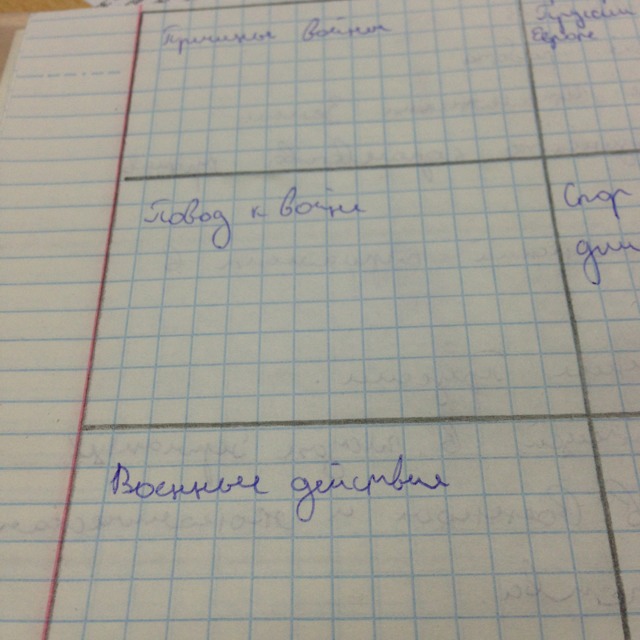 Причины войны
Повод к войне
Спор
Военные действия